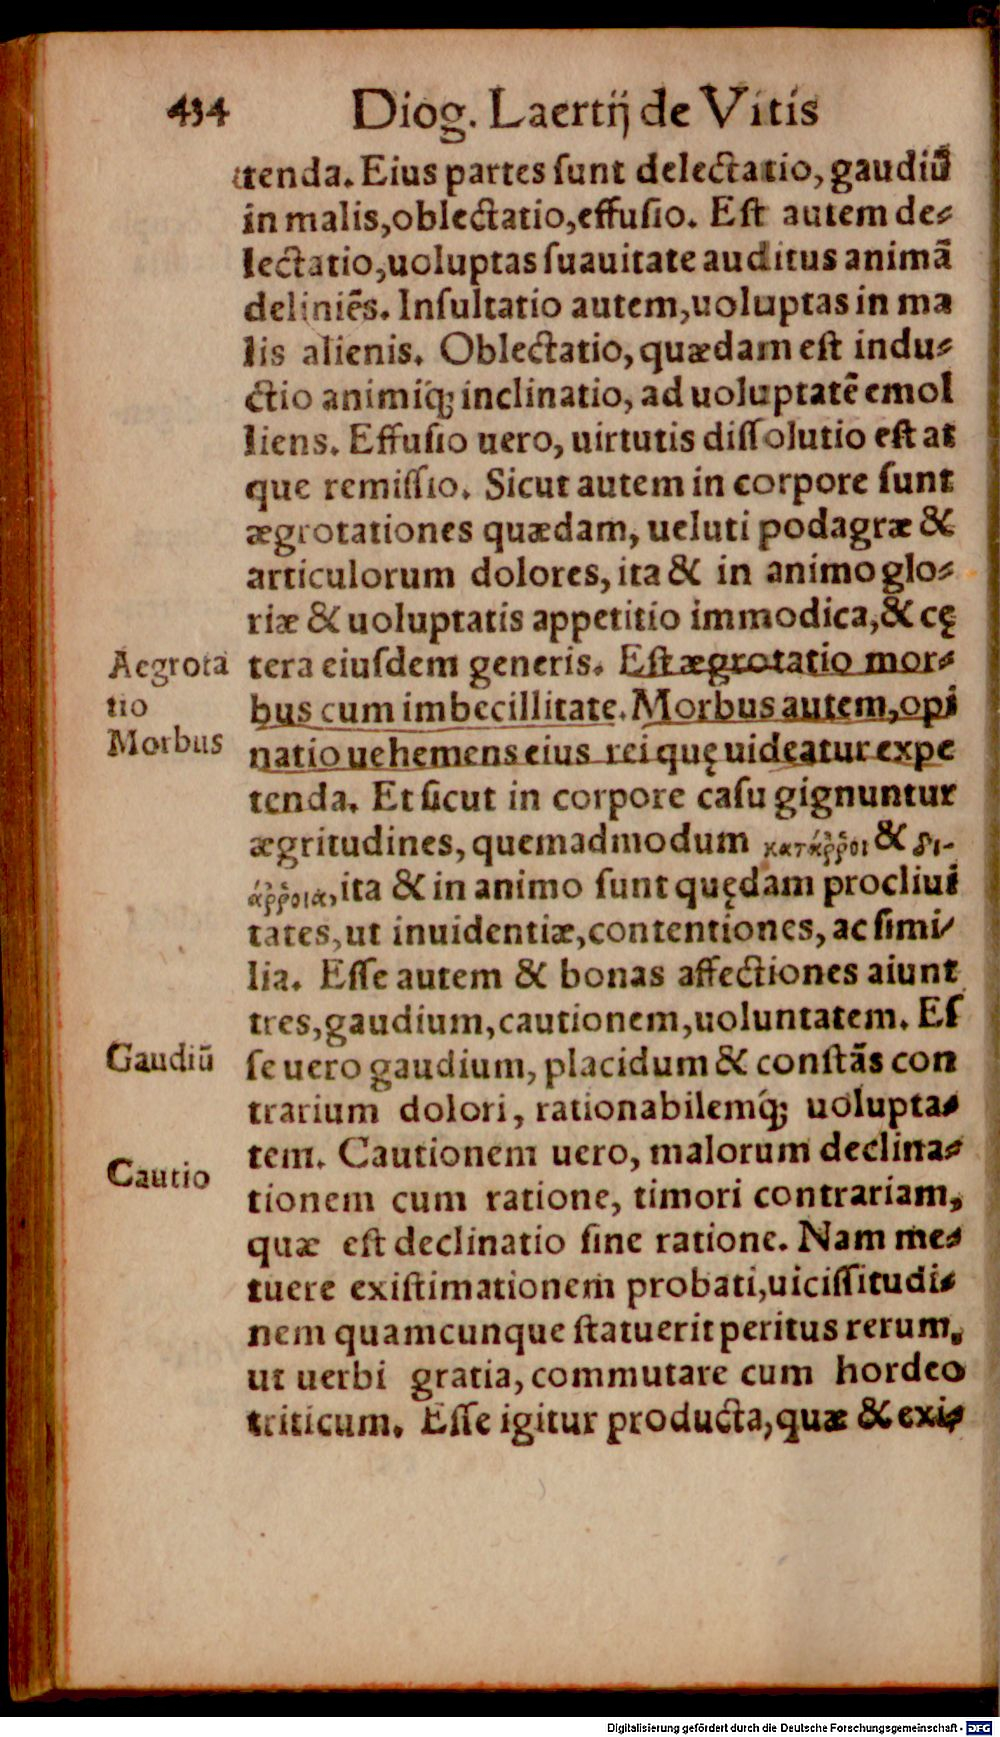 434 Diog. Laertij de Vitis
tenda. Eius partes ſunt delectatio, gaudiū
in malis, oblectatio, effuſio. Eſt autem de⸗
lectatio, uoluptas ſuauitate auditus animā
deliniēs. Inſultatio autem, uoluptas in ma
lis alienis. Oblectatio, quædam eſt indu⸗
ctio animiq́; inclinatio, ad uoluptatē emol
liens. Effuſio uero, uirtutis diſſolutio eſt at
que remiſſio. Sicut autem in corpore ſunt
ægrotationes quædam, ueluti podagræ &
articulorum dolores, ita & in animo glo⸗
riæ & uoluptatis appetitio immodica, & cę
Aegrota
tio
Morbus
tera eiuſdem generis. Eſt ægrotatio mor⸗
bus cum imbecillitate. Morbus autem, opi
natio uehemens eius rei quę uideatur expe
tenda. Et ſicut in corpore caſu gignuntur
ægritudines, quemadmodum κατάῤῥοι & δι-
άῤῥοια, ita & in animo ſunt quędam procliui
tates, ut inuidentiæ, contentiones, ac ſimi⸗
lia. Eſſe autem & bonas affectiones aiunt
tres, gaudium, cautionem, uoluntatem. Eſ
Gaudiū
ſe uero gaudium, placidum & conſtās con
trarium dolori, rationabilemq́; uolupta⸗
tem. Cautionem uero, malorum declina⸗
Cautio
tionem cum ratione, timori contrariam,
quæ eſt declinatio ſine ratione. Nam me⸗
tuere exiſtimationem probati, uiciſſitudi⸗
nem quamcunque ſtatuerit peritus rerum,
ut uerbi gratia, commutare cum hordeo
triticum. Eſſe igitur producta, quæ & exi⸗
Digitalisierung gefördert durch die Deutsche Forschungsgemeinschaft - DFG